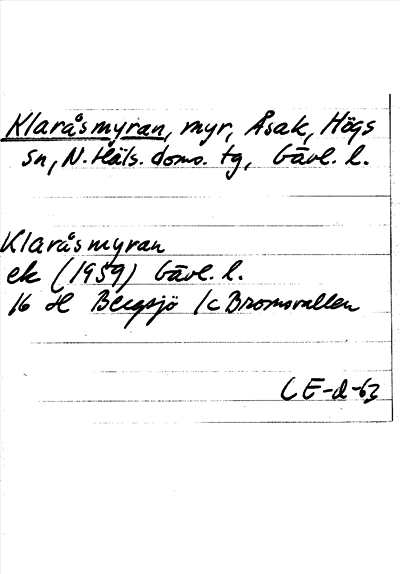 Klaråsmyran, myr, Åsak, Högs
sn, N. Häls. doms. tg, Gävl. l.
Klaråsmyran
ek (1959) Gävl. l.
16 H Bergsjö 1c Bromsvallen
CE-d-63